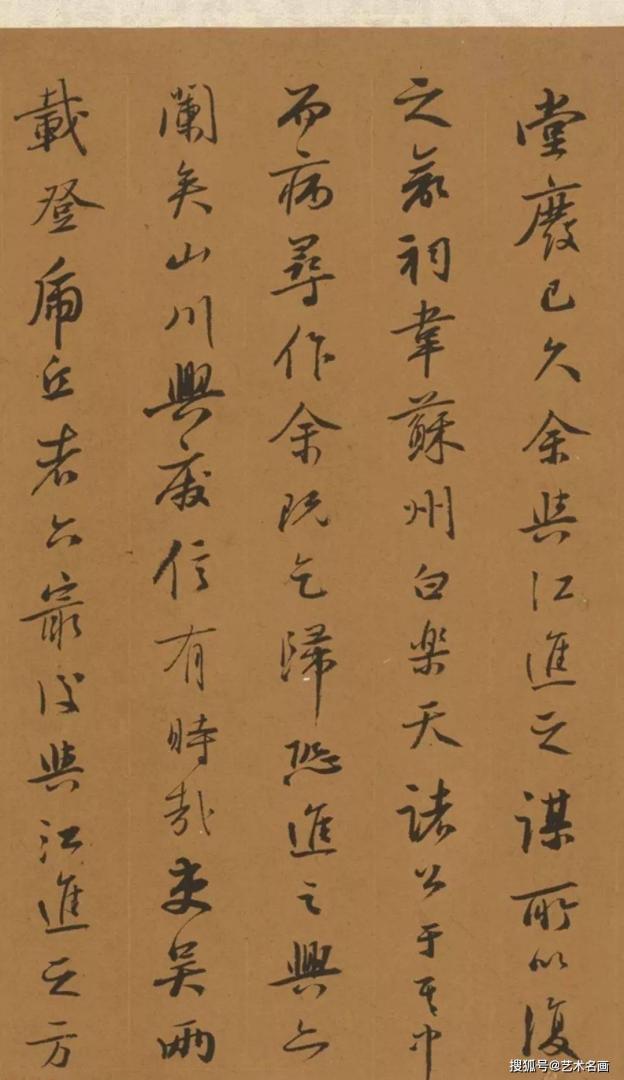 堂廢已久余與江進之謀所以復
之欲祠韋蘇州白樂天諸公于其中
而病尋作余既乞歸恐進之興亦
闌矣山川興廢信有時哉吏吳兩
載登虎丘者六最後與江進之方
搜狐号@艺术名画